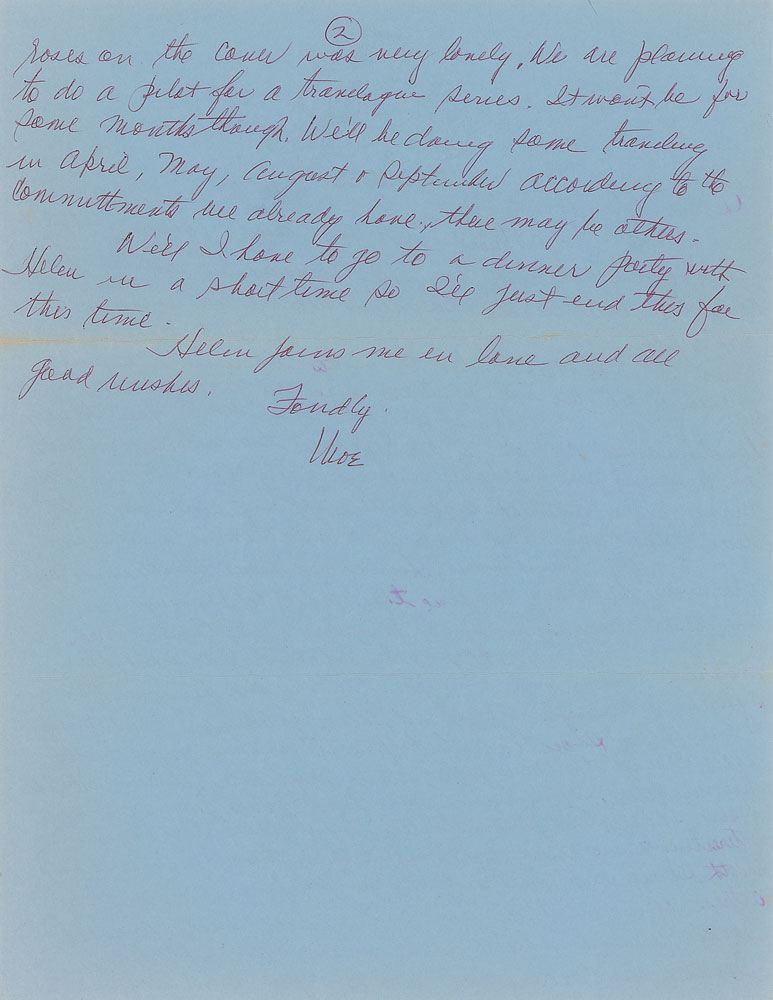 2
roses on the cover was very lovely. We are planning
to do a pilot for a travelogue series. It won't be for
some months though. We'll be doing some traveling
in April, May, August & September according to the
committments we already have, there may be others.
Well I have to go to a dinner party with
Helen in a short time so I'll just end this for
this time.
Helen joins me in love and all
good wishes.
Fondly.
Moe